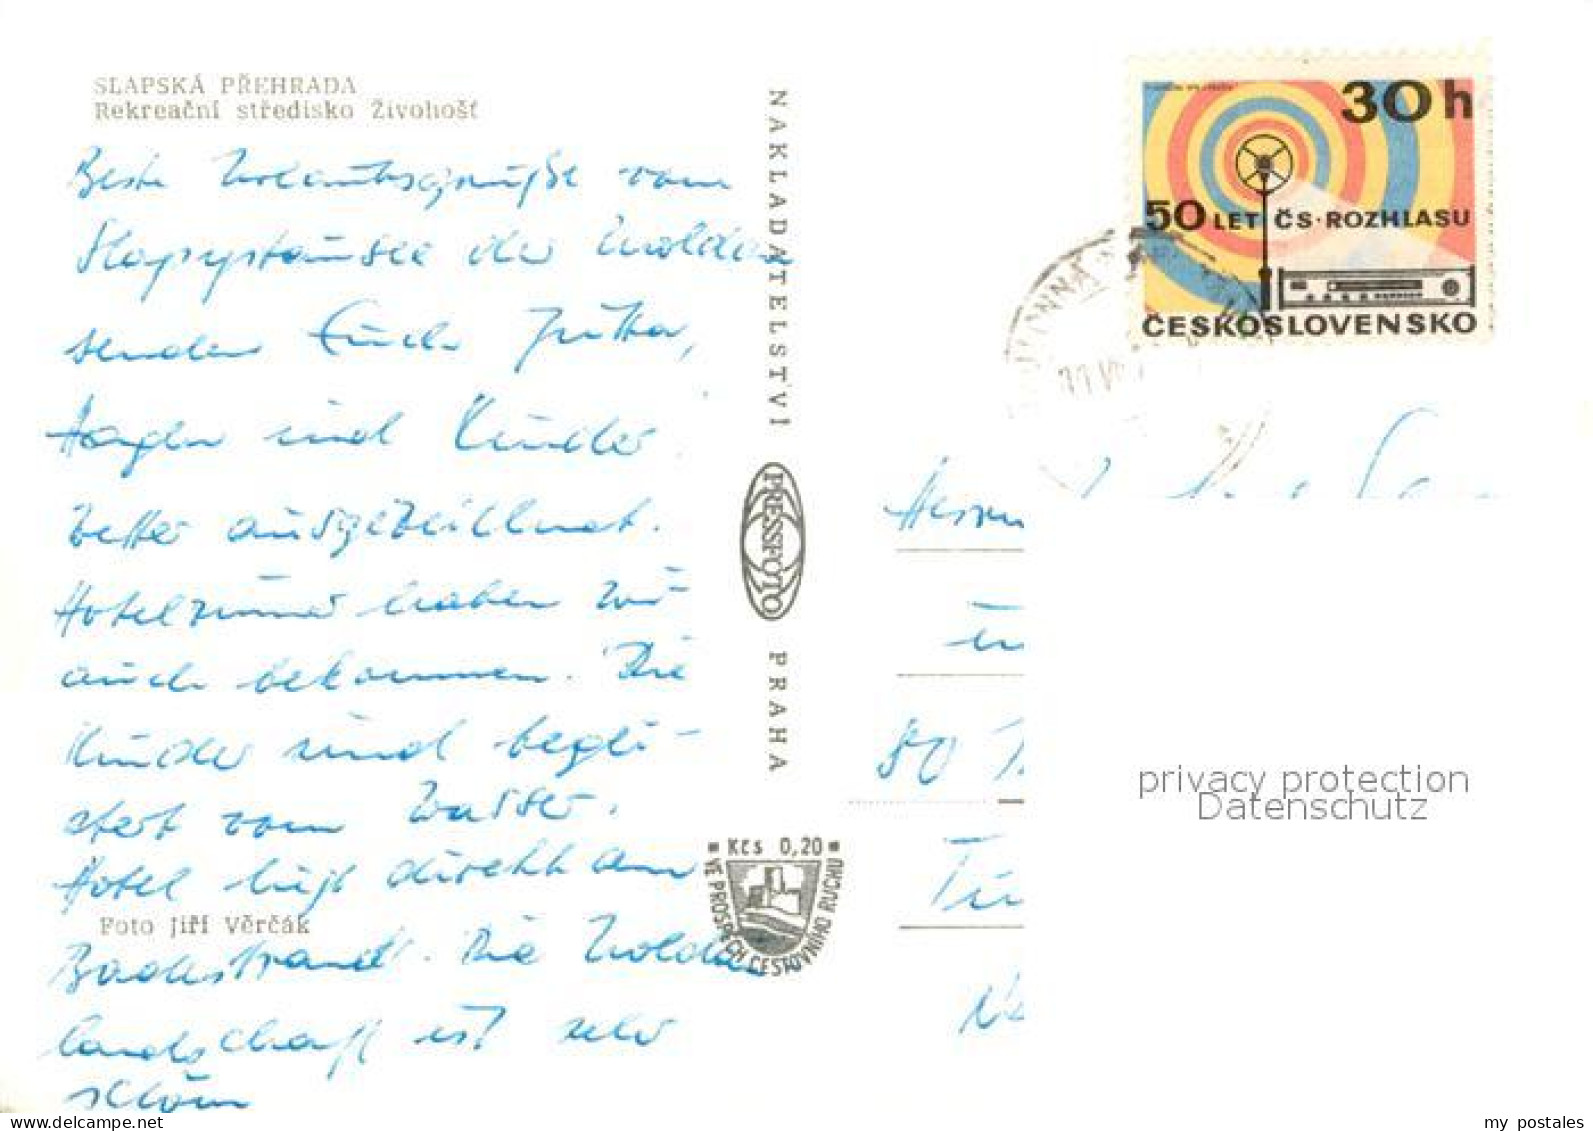 SLAPSKÁ PŘEHRADA
Rekreační středisko Živohošť
Beste Urlaubsgrüße vom
Slapystausee der Moldau
senden Euch Jutta,
Hagen und Kinder.
Wetter ausgezeichnet.
Hotelzimmer haben wir
auch bekommen. Die
Kinder sind begei-
stert vom Wasser.
Hotel liegt direkt am
Foto Jiří Věrčák
Badestrand. Die Moldau
landschaft ist sehr
schön
NAKLADATELSTVÍ
PRESSFOTO
PRAHA
Kčs 0,20
VE PROSPĚCH CESTOVNÍHO RUCHU
30h
50 LET ČS. ROZHLASU
ČESKOSLOVENSKO
Herrn
80
privacy protection
Datenschutz
my postales